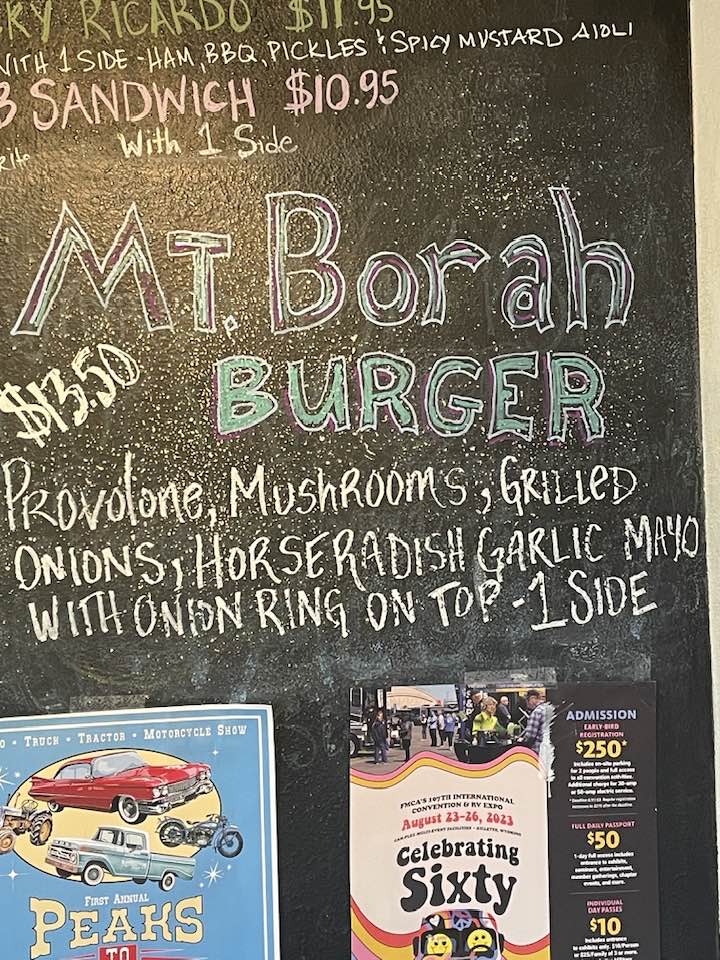 KY RICARDO $11.95
WITH 1 SIDE - HAM, BBQ, PICKLES & SPICY MUSTARD AIOLI
B SANDWICH $10.95
With 1 Side
MT. Borah
$13.50
BURGER
PROVOLONE, MUSHROOMS, GRILLED
ONIONS, HORSERADISH GARLIC MAYO
WITH ONION RING ON TOP - 1 SIDE
O • TRUCK • TRACTOR • MOTORCYCLE SHOW
FIRST ANNUAL
PEAKS
TO
FMCA'S 107TH INTERNATIONAL
CONVENTION & RV EXPO
August 23-26, 2023
CAM-PLEX MULTI-EVENT FACILITIES • GILLETTE, WYOMING
Celebrating
Sixty
ADMISSION
EARLY-BIRD
REGISTRATION
$250*
Includes on-site parking
for 2 people and full access
to all convention activities.
Additional charge for 30-amp
or 50-amp electric service.
FULL DAILY PASSPORT
$50
1-day full access includes
entrance to exhibits,
seminars, entertainment,
member gatherings, chapter
events, and more.
INDIVIDUAL
DAY PASSES
$10
Includes entrance
to exhibits only. $10/Person
or $25/Family of 3 or more.